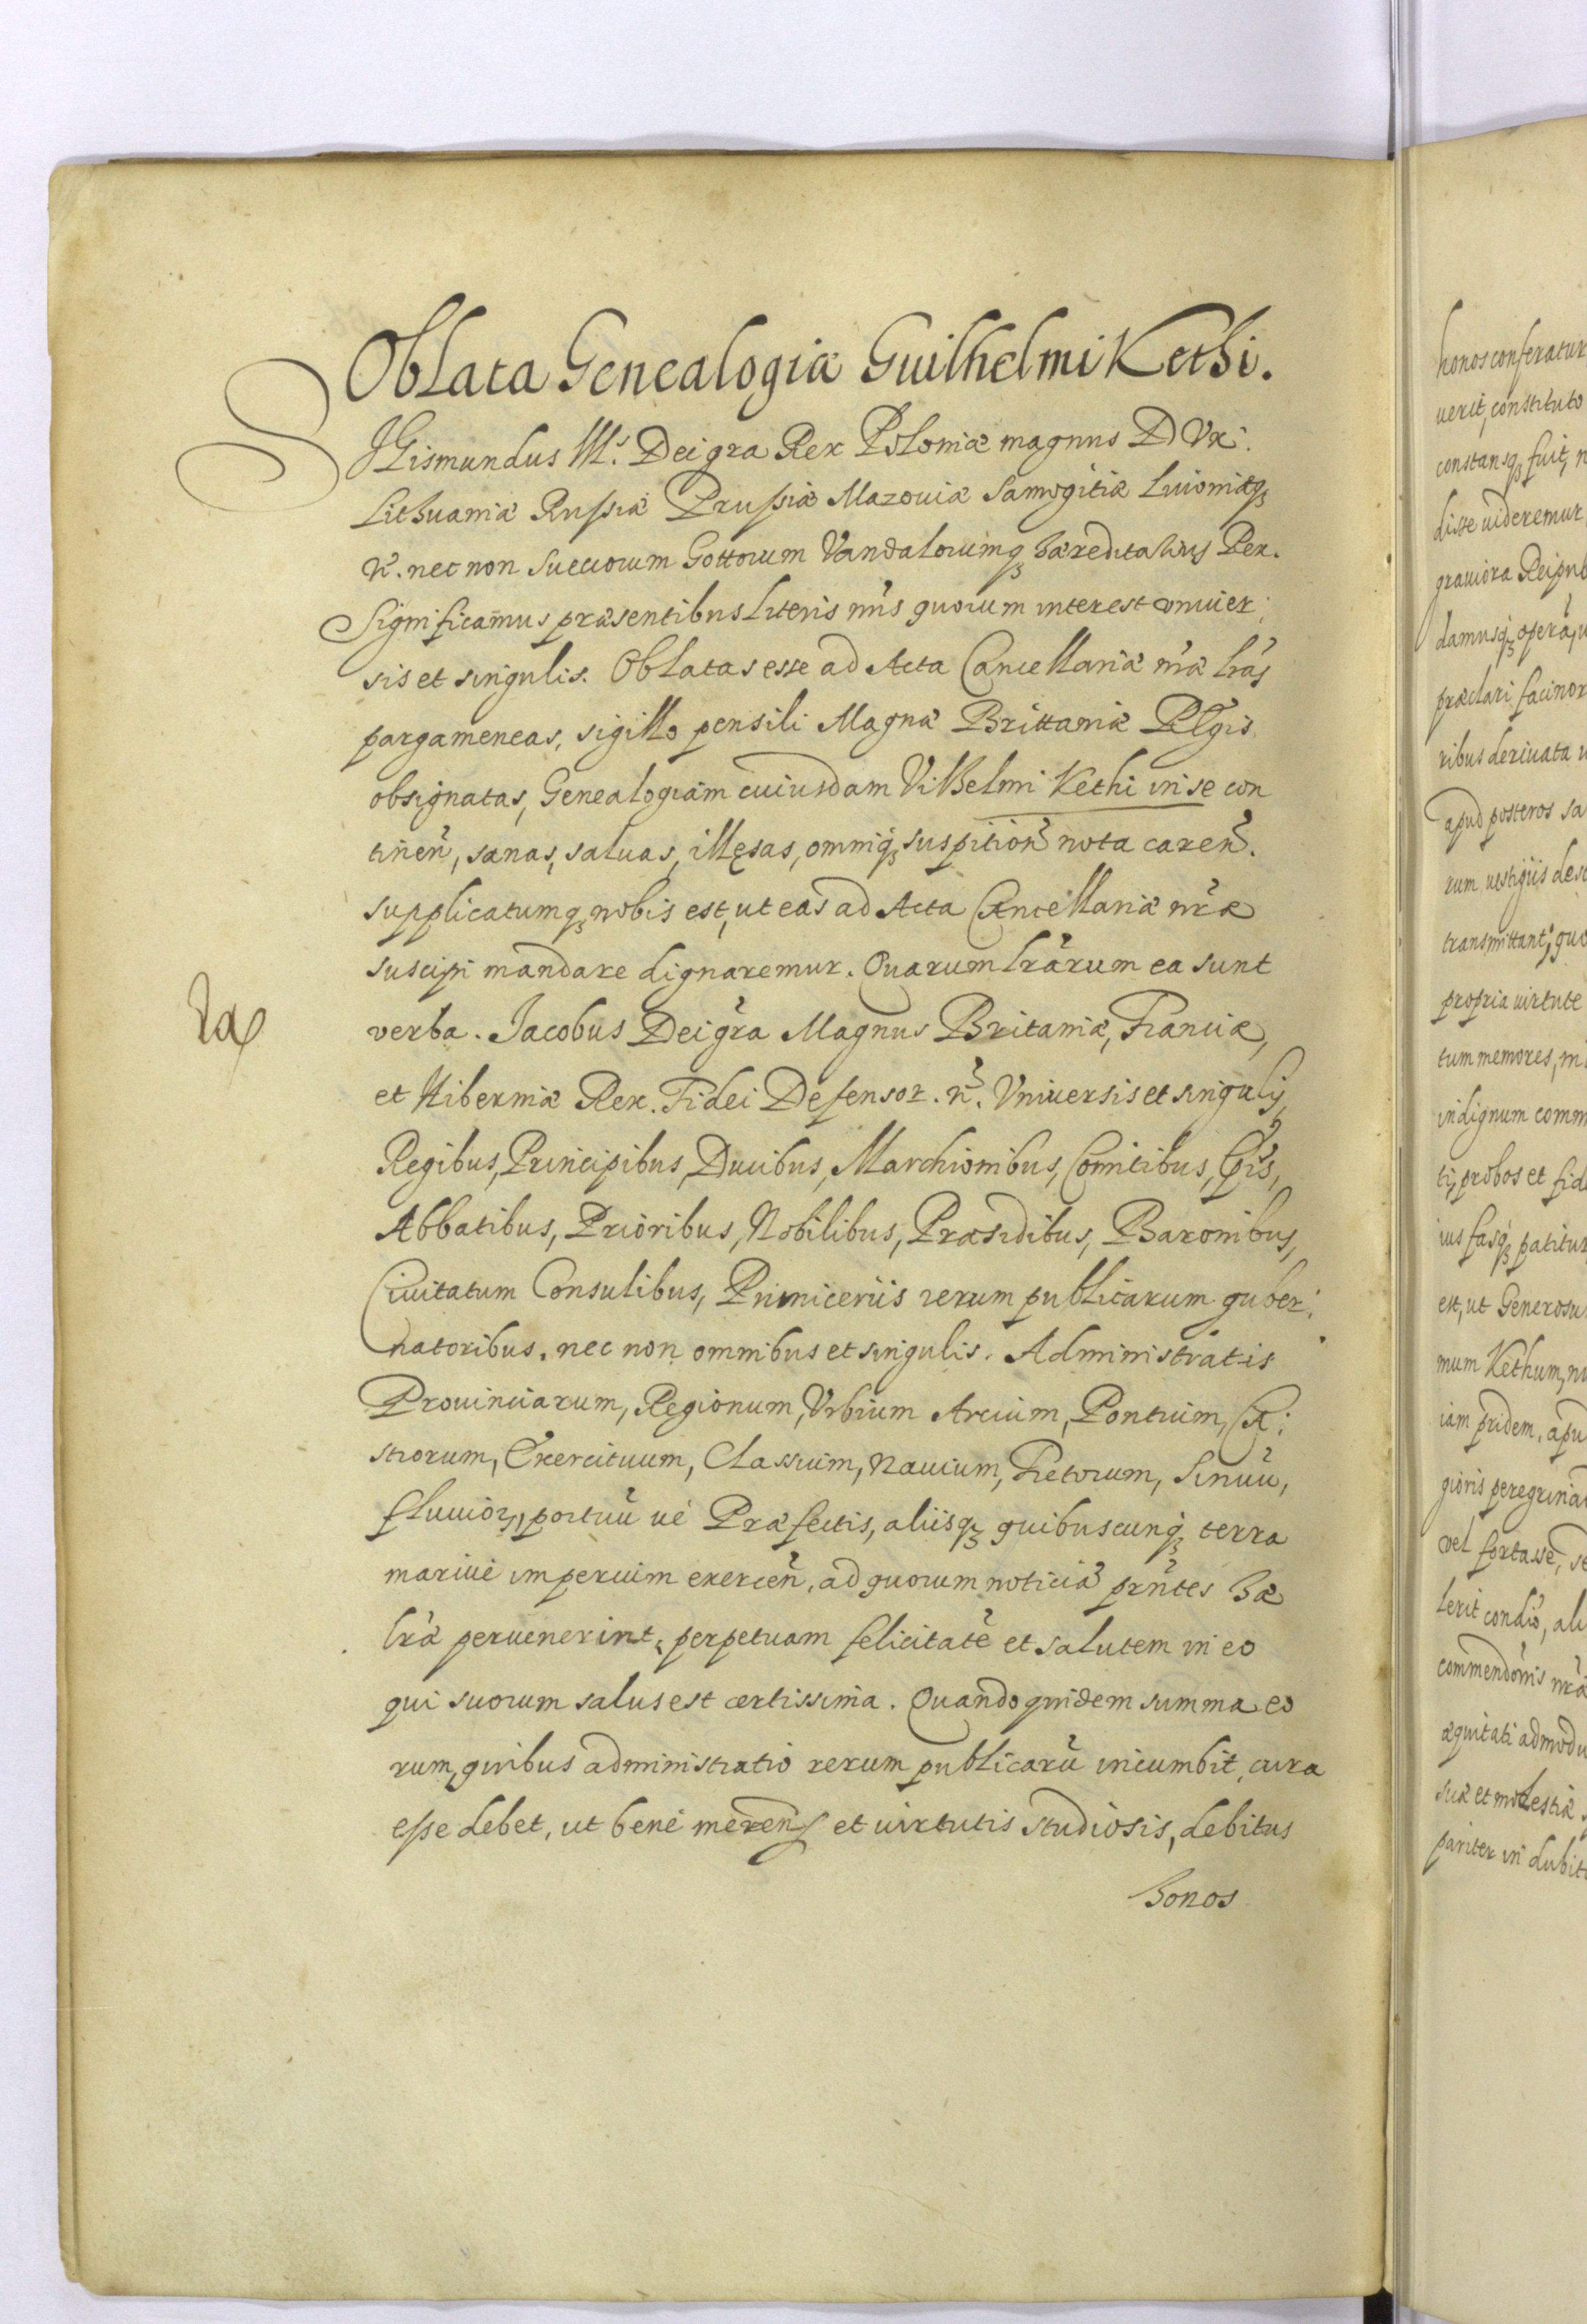 Oblata Genealogiæ Guilhelmi Kethi.
SIGismundus III.s Dei gra Rex Poloniæ magnus DVx.
Lithuaniæ Russiæ Prussiæ Mazouiæ Samogitiæ Liuoniæq3
nec non Suecorum Gottorum Vandalorumq3 hæreditarius Rex.
Significamus præsentibus literis nris quorum interest vniuer:
sis et singulis. Oblatas esse ad Acta Cancellariæ nræ lras
pargameneas, sigillo pensili Magnæ Brittaniæ Regis
obsignatas, Genealogiam cuiusdam Vilhelmi Kethi in se con
tinen, sanas, saluas, illęsas, omniq3 suspition nota caren.
supplicatumq3 nobis est, ut eas ad Acta Cancellariæ nræ
suscipi mandare dignaremur. Quarum lrarum ea sunt
verba. Jacobus Dei gra Magnus Britaniæ, Franciæ,
et Hiberniæ Rex. Fidei Defensor. Vniuersis et singulis,
Regibus, Principibus, Ducibus, Marchionibus, Comitibus, Epis,
Abbatibus, Prioribus, Nobilibus, Præsidibus, Baronibus,
Ciuitatum Consulibus, Primiceriis rerum publicarum guber:
natoribus. nec non omnibus et singulis. Administratis
Prouinciarum, Regionum, Vrbium Arcium, Pontium, Ca:
strorum, Exercituum, Classium, Nauium, Fretorum, Sinuũ,
fluuior, portuũ uè Præfectis, aliisq3 quibuscunq3 terra
mariuè imperium exercen, ad quorum noticiã prñtes hæ
lræ peruenerint, perpetuam felicitatẽ et salutem in eo
qui suorum salus est certissima. Quandoquidem summa eo
rum, quibus administratio rerum publicarũ incumbit, cura
esse debet, ut benè meren et uirtutis studiosis, debitus
honos
honos conferatur
uerit, constituto
constansq3 fuit, n
disse uideremur
grauiora Reipub
damusq3 operã, u
præclari facinor
ribus deriuata u
apud posteros sa
rum uestigiis des
transmittant, quo
propria uirtute
tum memores,
indignum comm
ti, probos et fid
ius fasq3 patitur
est, ut Generosu
mum Kethum, n
iam pridem, apu
gionis peregrina
vel fortasse, se
lerit condio, ali
commendonis nra
æquitati admodu
suæ et molestiæ
pariter in dubit